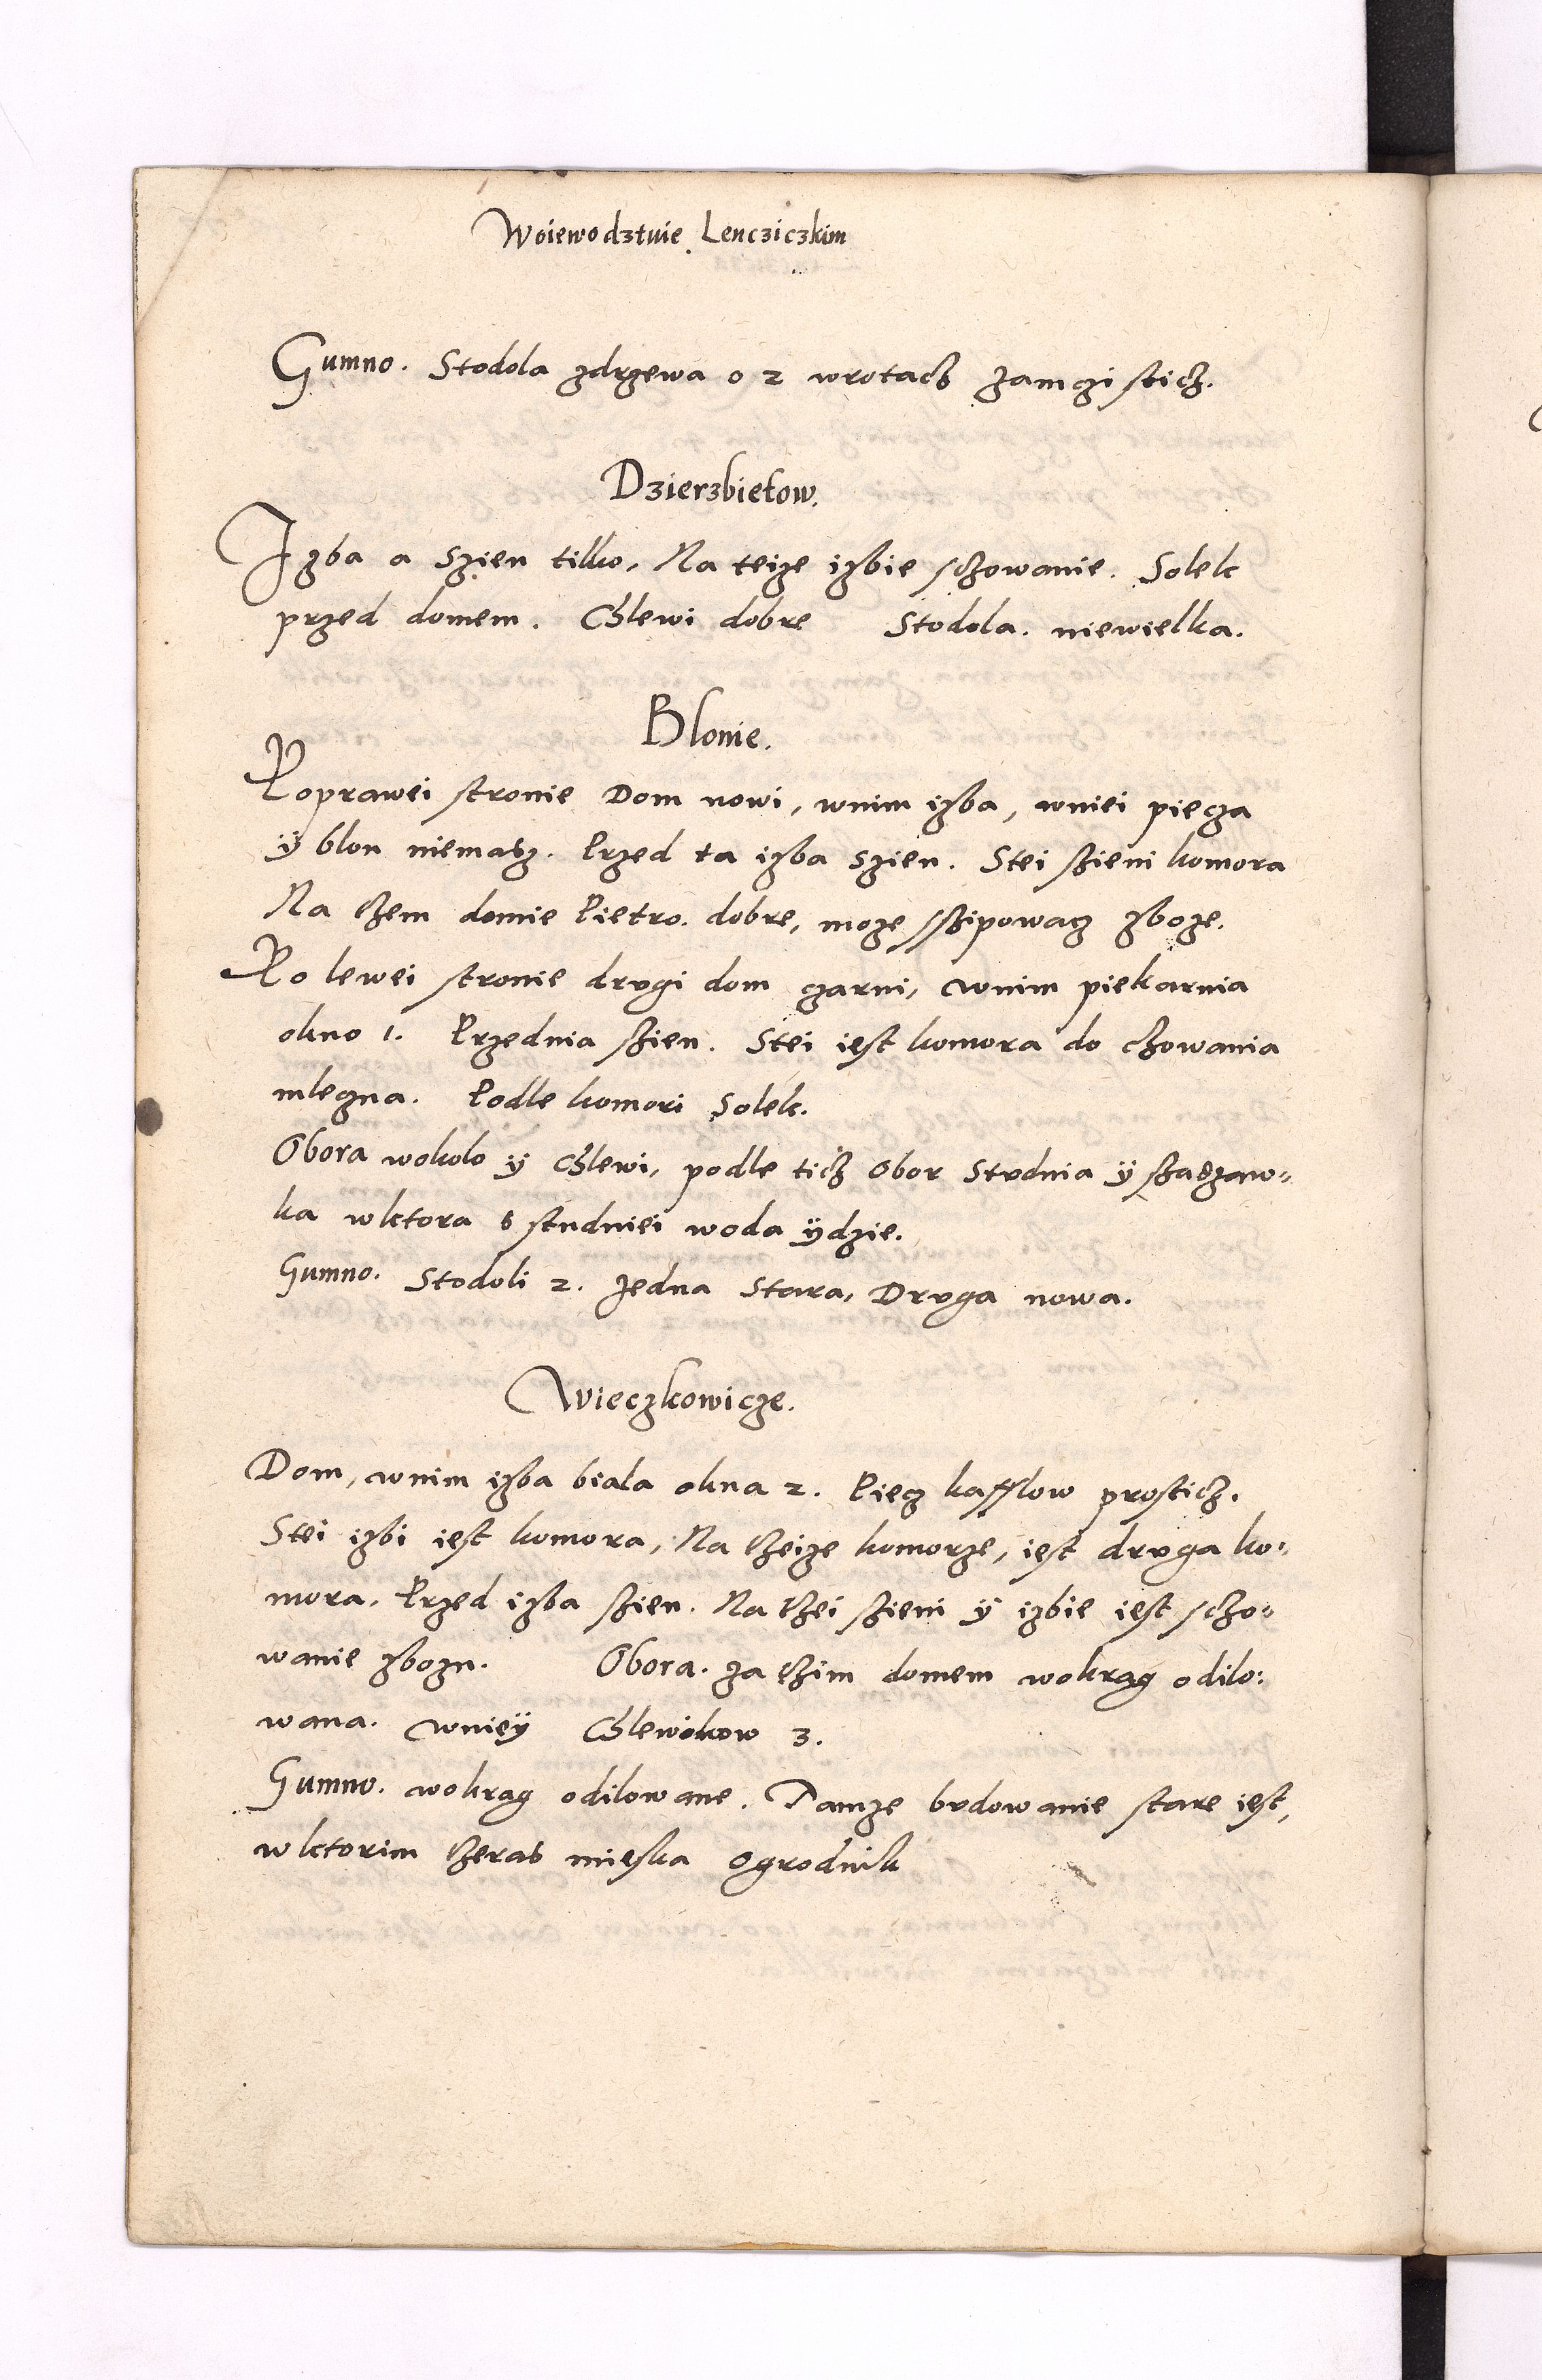 Woiewodztwie Lencziczkim
Gumno. Stodola zdrzewa o 2 wrotach zamczistich.
Dzierzbietow.
Izba a szien tilko, Na teize izbie schowanie. Solek
przed domem. Chlewi dobre Stodola. niewielka.
Blonie.
Poprawei stronie Dom nowi, wnim izba, wniei piecza
ÿ blon niemasz. Przed ta izba szien. Stei szieni komora
Na them domie Pietro. dobre, moze sszipowacz zboze.
Po lewei stronie drvgi dom czarni, wnim piekarnia
okno 1. Przednia szien. Stei iest komora do chowania
mleczna. Podle komori Solek.
Obora wokolo ÿ Chlewi, podle tich Obor Stvdnia ÿ sadzaw-
ka wktora s studniei woda ÿdzie.
Gumno. Stodoli 2. Jedna Stara, Drvga nowa.
Wieczkowicze.
Dom, wnim izba biala okna 2. Piecz kafflow prostich.
Stei izbi iest komora, Na theize komorze, iest drvga ko-
mora. Przed izba szien. Na thei szieni ÿ izbie iest scho-
wanie zbozu. Obora. za thim domem wokrag odilo-
wana. wnieÿ Chlewikow 3.
Gumno. wokrag odilowane. Tamze bvdowanie stare iest,
wktorim theras mieska Ogrodnik